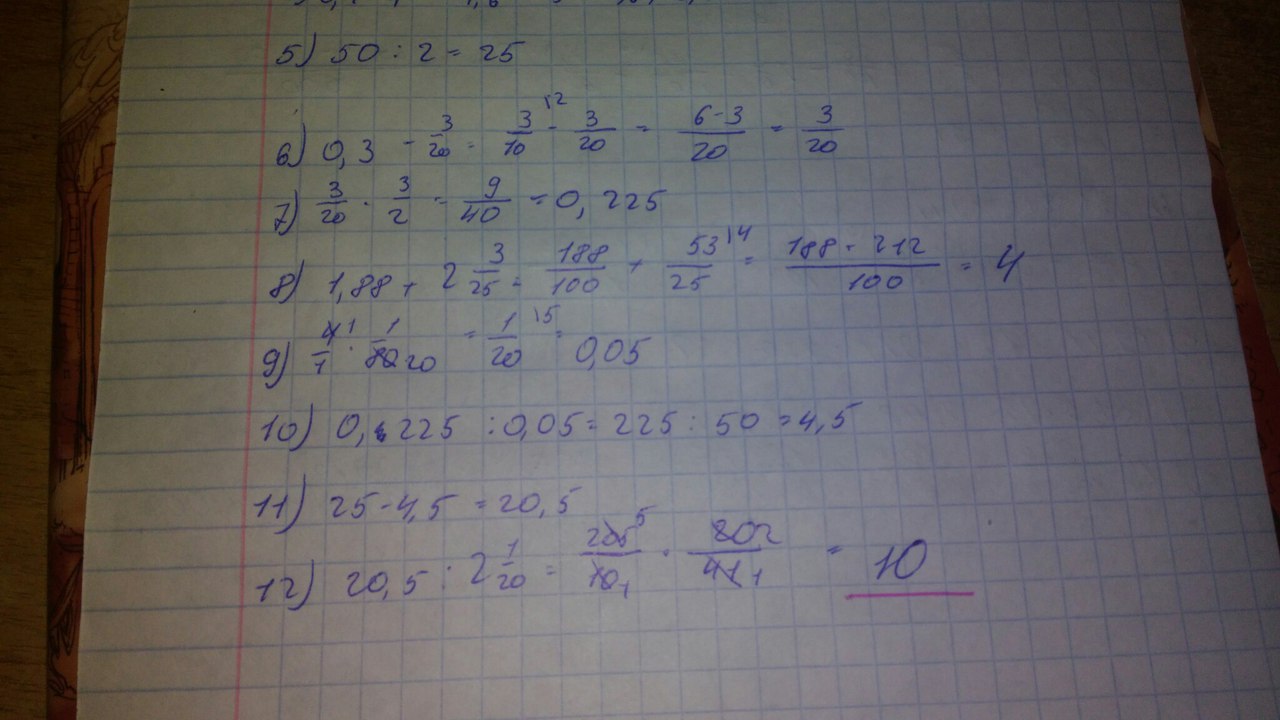 5) 50 : 2 = 25
6) 0,3 - 3/20 = 3/10 \2 - 3/20 = 6-3/20 = 3/20
7) 3/20 · 3/2 = 9/40 = 0,225
8) 1,88 + 2 3/25 = 188/100 + 53/25 \4 = 188 + 212/100 = 4
9) 4/1 1 · 1/80 20 = 1/20 \5 = 0,05
10) 0,225 : 0,05 = 225 : 50 = 4,5
11) 25 - 4,5 = 20,5
12) 20,5 : 2 1/20 = 205 5/10 1 · 20 2/41 1 = 10